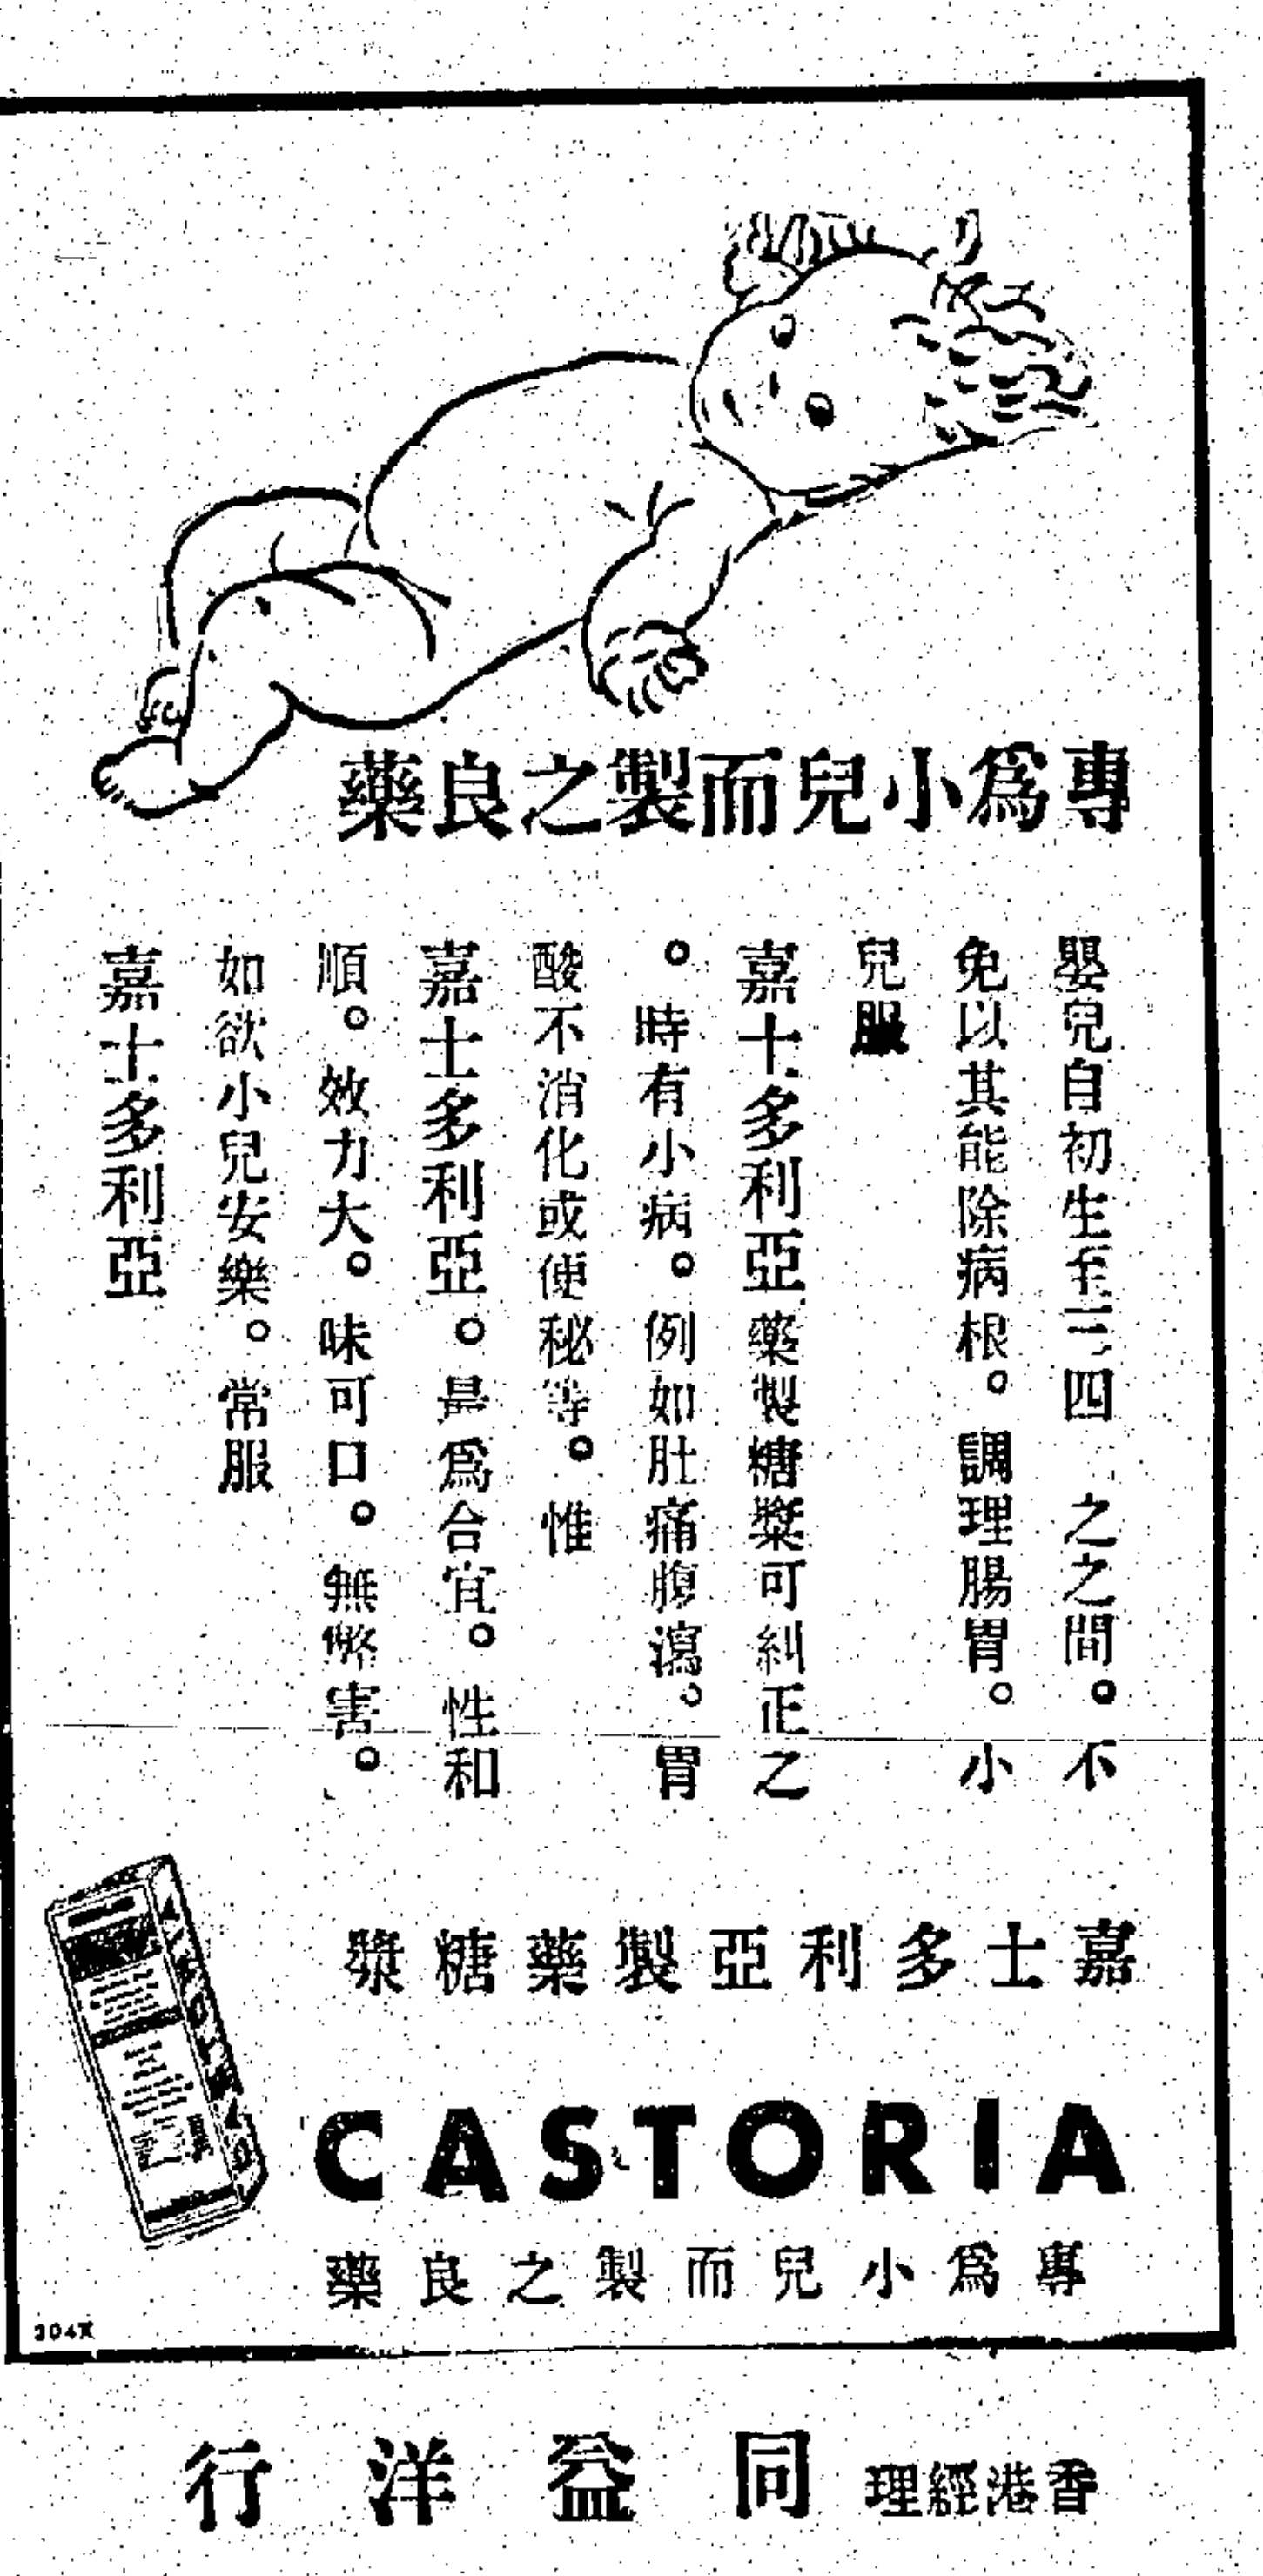 專爲小兒而製之良藥
嬰兒自初生至三四 之之間。不
免以其能除病根。調理腸胃。小
兒服
嘉士多利亞藥製糖漿可糾正之
。時有小病。例如肚痛腹瀉。胃
酸不消化或便秘等。惟
嘉士多利亞。最爲合宜。性和
順。效力大。味可口。無弊害。
如欲小兒安樂。常服
嘉士多利亞
嘉士多利亞製藥糖漿
CASTORIA
專爲小兒而製之良藥
香港經理 同益洋行